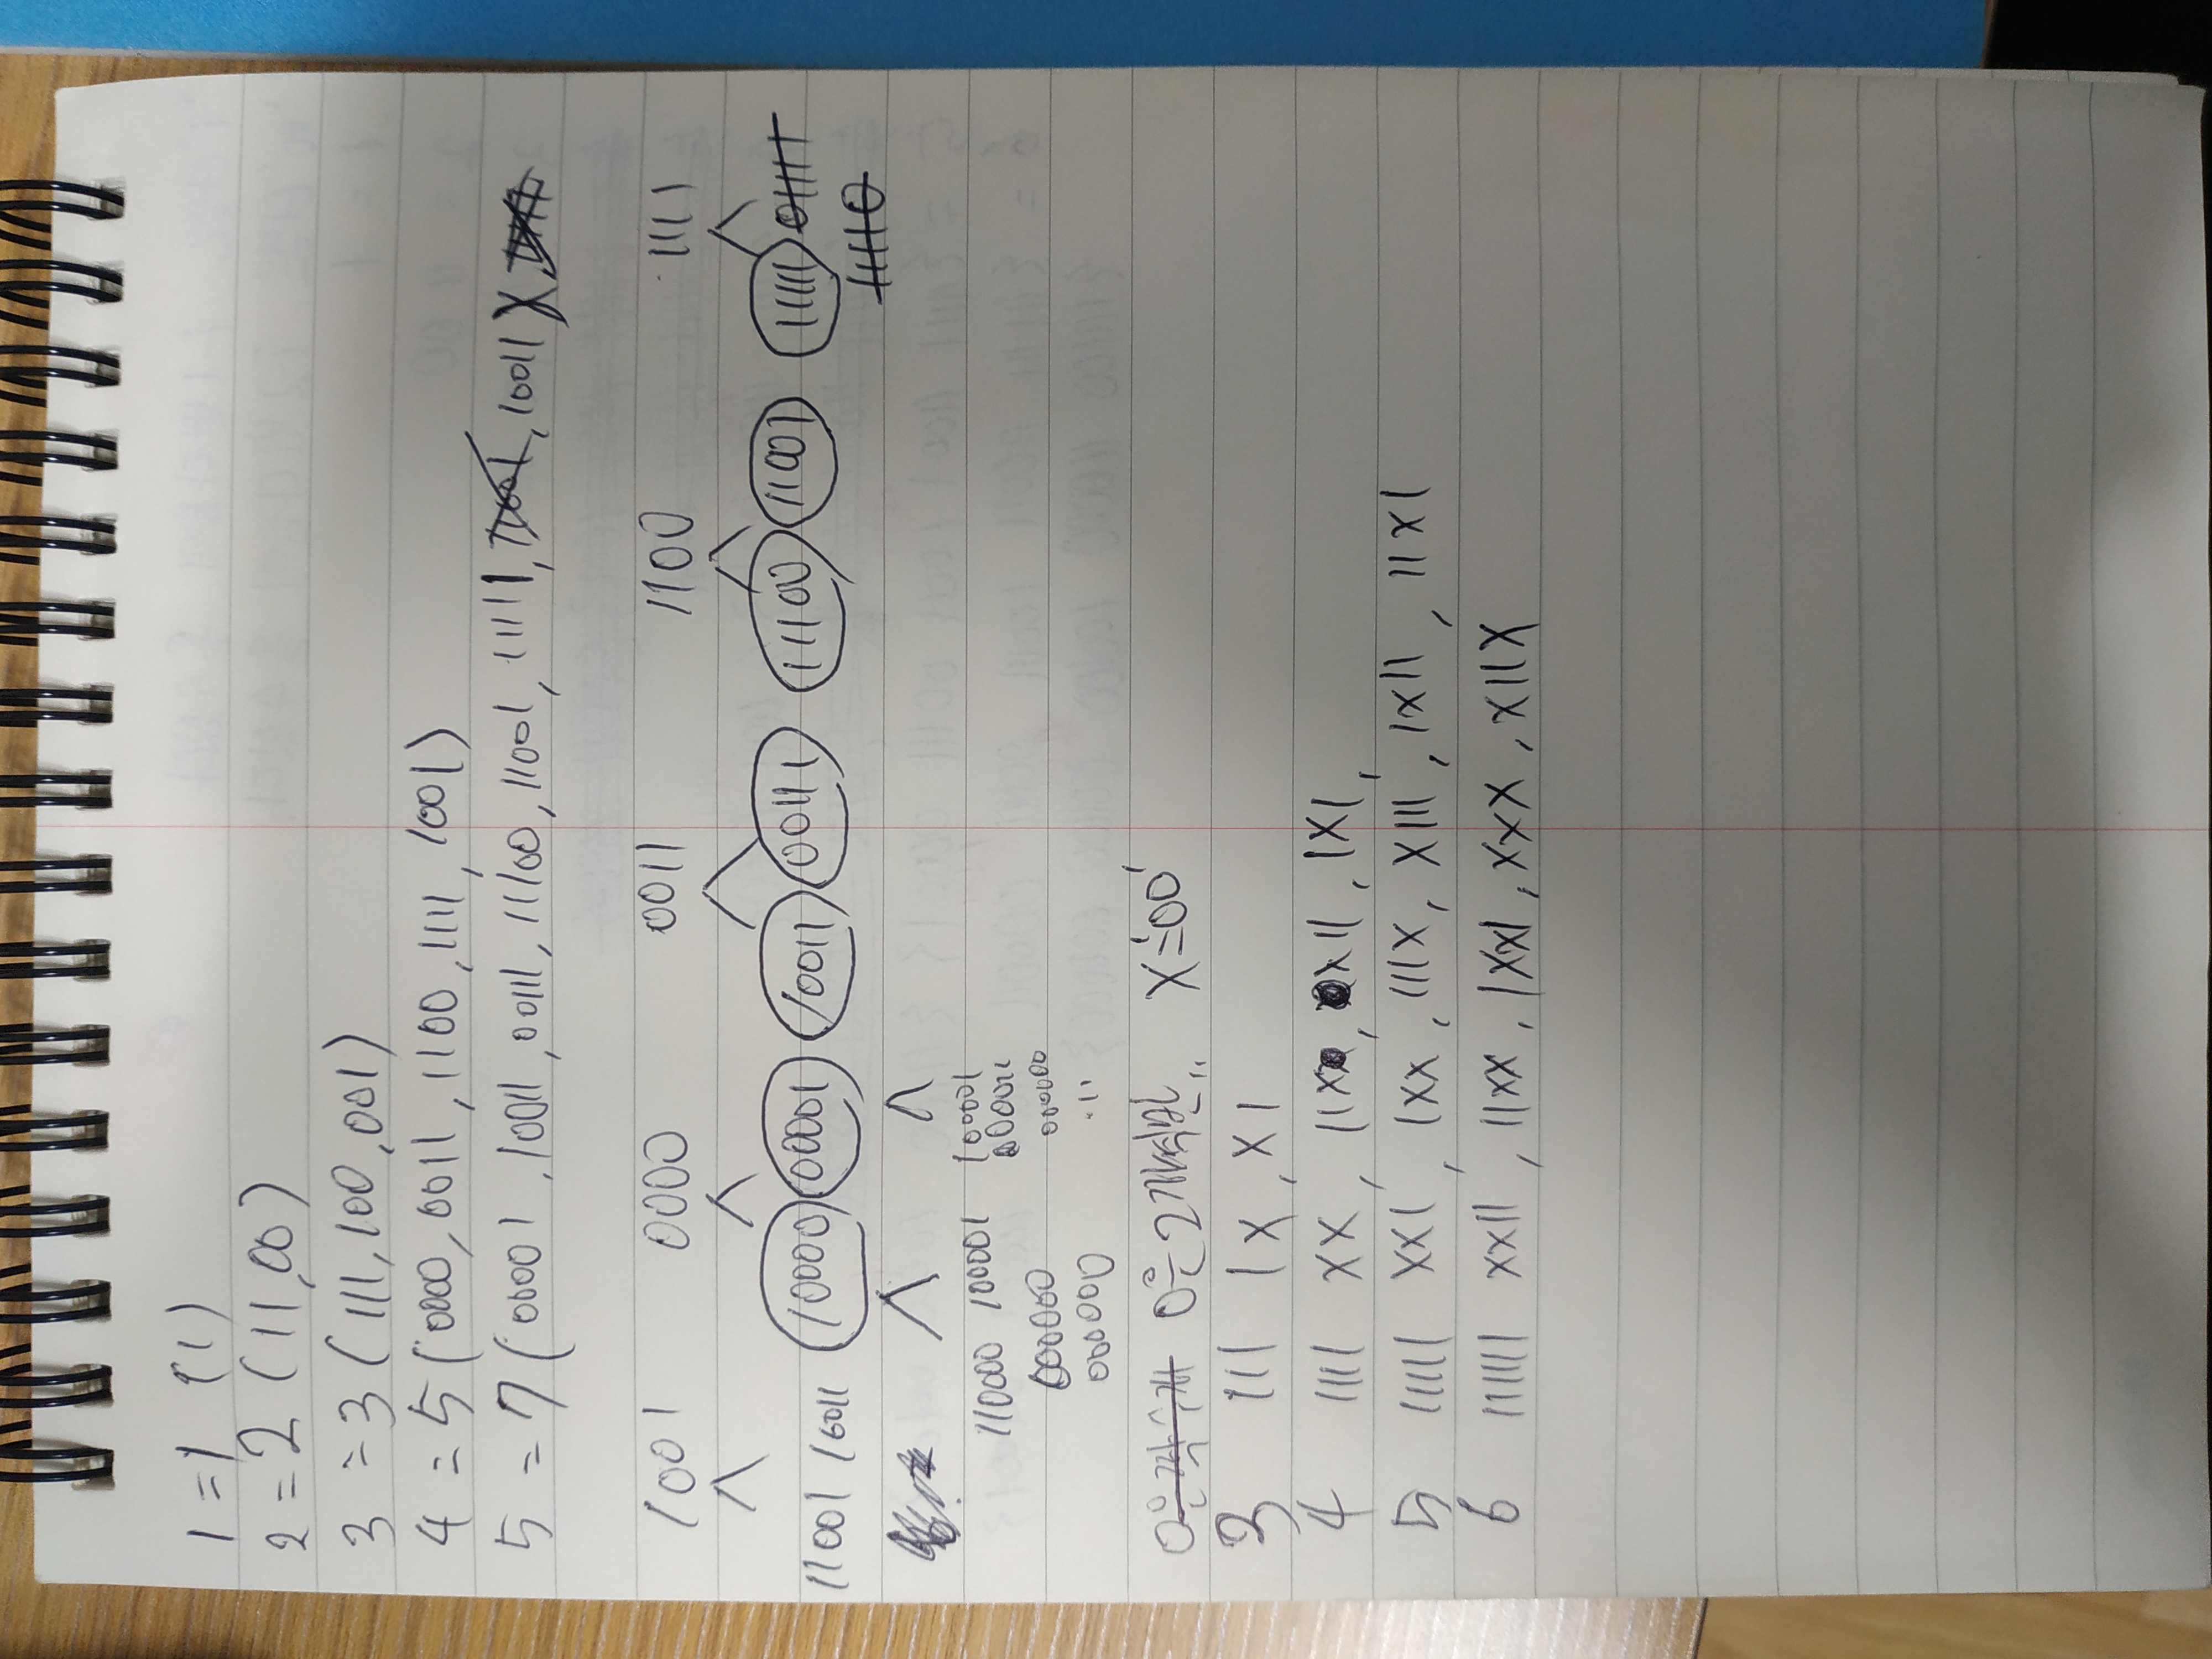 1 = 1 (1)
2 = 2 (11,00)
3 = 3 (111, 100, 001)
4 = 5 (0000, 0011, 1100, 1111, 1001)
5 = 7 (00001, 10011, 00111, 11100, 11001, 11111, 11001, 10011)
1001 0000 0011 1100 1111
11001 10011 10000 00001 10011 00111 11100 11001 11111 01111
11110
110000 100001 100001
000011
000000 000000
000000 "
0은 짝수개 0은 2개씩만.. X='00'
3 111 1X, X1
4 1111 XX, 11X, X11, 1X1,
5 11111 XX1, 1XX, 111X, X111, 1X11, 11X1
6 111111 XX11, 11XX, 1XX1, XXX, X11X